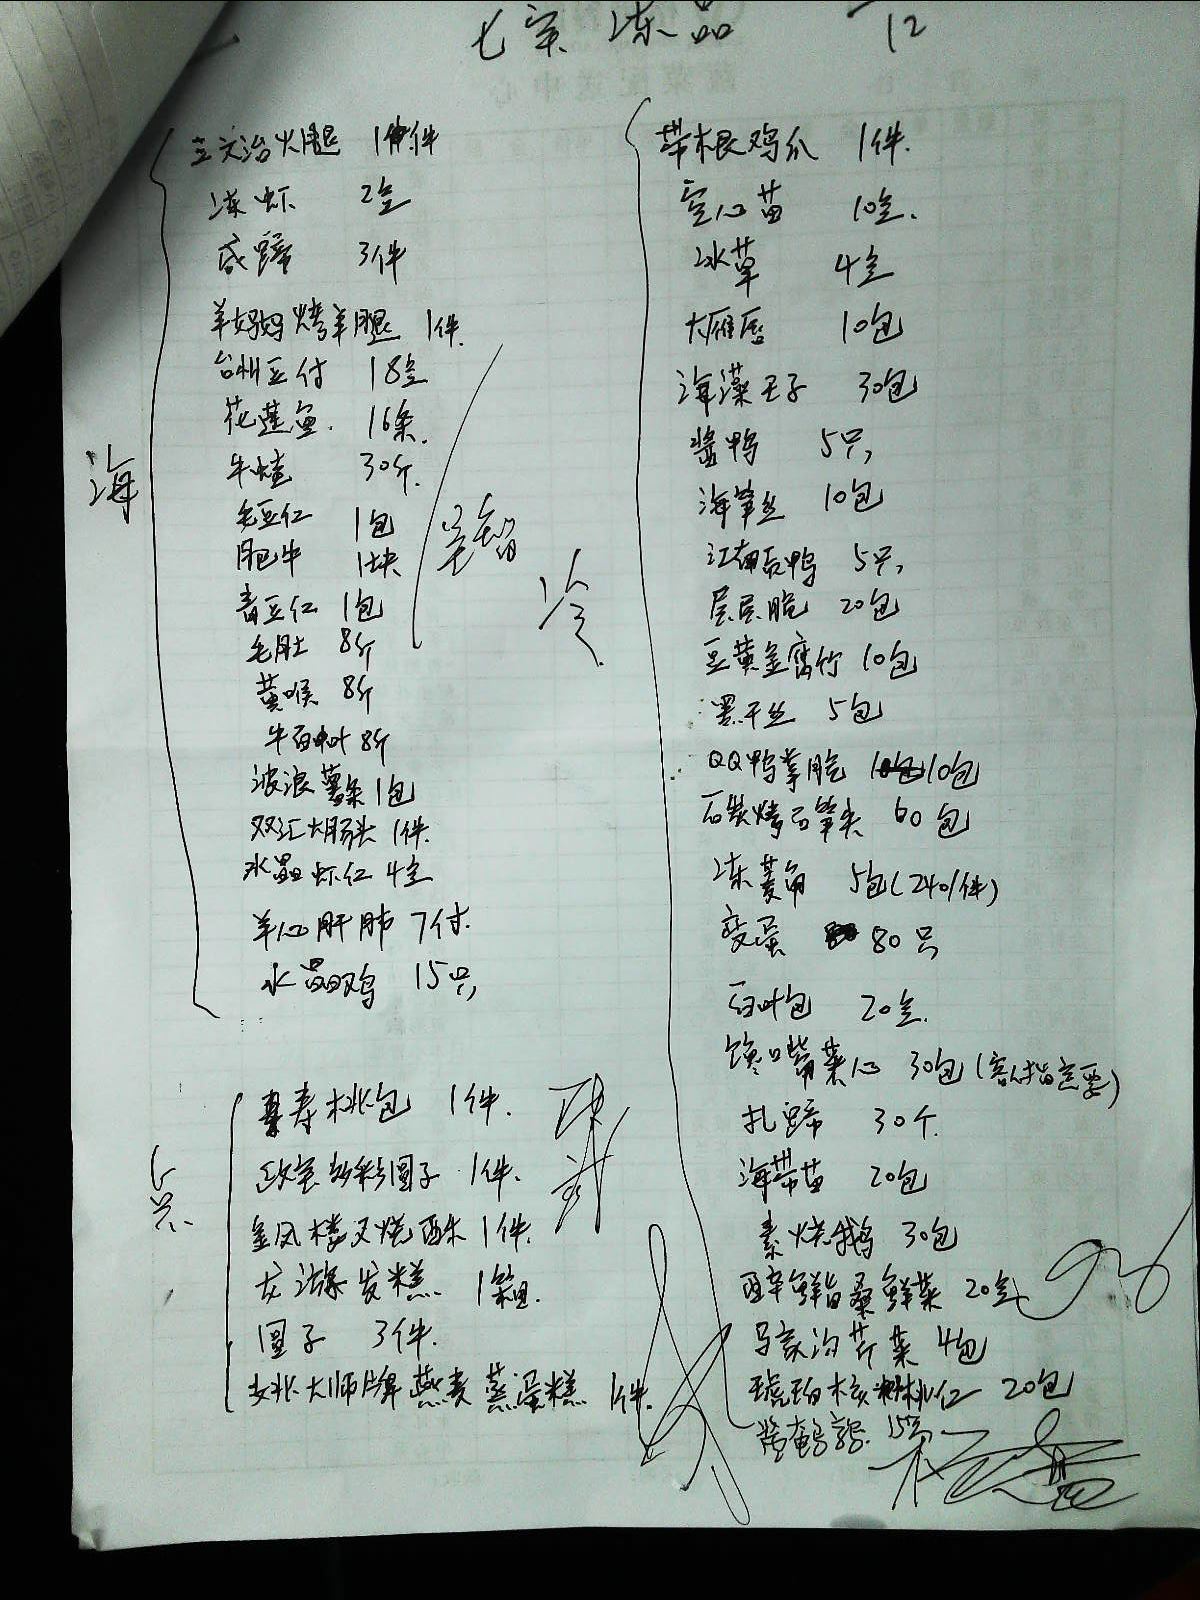 冻品 12
海
三文治火腿 1件
冻虾 2盒
咸蹄 3件
羊妈妈烤羊腿 1件
台州豆付 18盒
花莲鱼 16条
牛蛙 30斤
毛豆仁 1包
肥牛 1块
青豆仁 1包
毛肚 8斤
黄喉 8斤
牛百叶 8斤
波浪薯条 1包
双汇大肠头 1件
水晶虾仁 4盒
羊心肝肺 7付
水晶鸡 15只
点
寿桃包 1件
圆子 1件
金凤楼叉烧酥 1件
发糕 1箱
圆子 3件
大师牌燕麦蒸蛋糕 1件
冷
带根鸡爪 1件
空心苗 10盒
冰草 4盒
10包
海藻王子 30包
酱鸭 5只
海笋丝 10包
江南贡鸭 5只
层层脆 20包
豆黄金腐竹 10包
熏干丝 5包
QQ鸭掌脆 10包
石笋尖 60包
冻菱角 5包(240/件)
变蛋 80只
百叶包 20盒
馋口嘴菜心 30包(客人指定要)
扎蹄 30个
海带苗 20包
素烧鹅 30包
20盒
马家沟芹菜 4包
琥珀核桃仁 20包
酱鹌鹑 15只